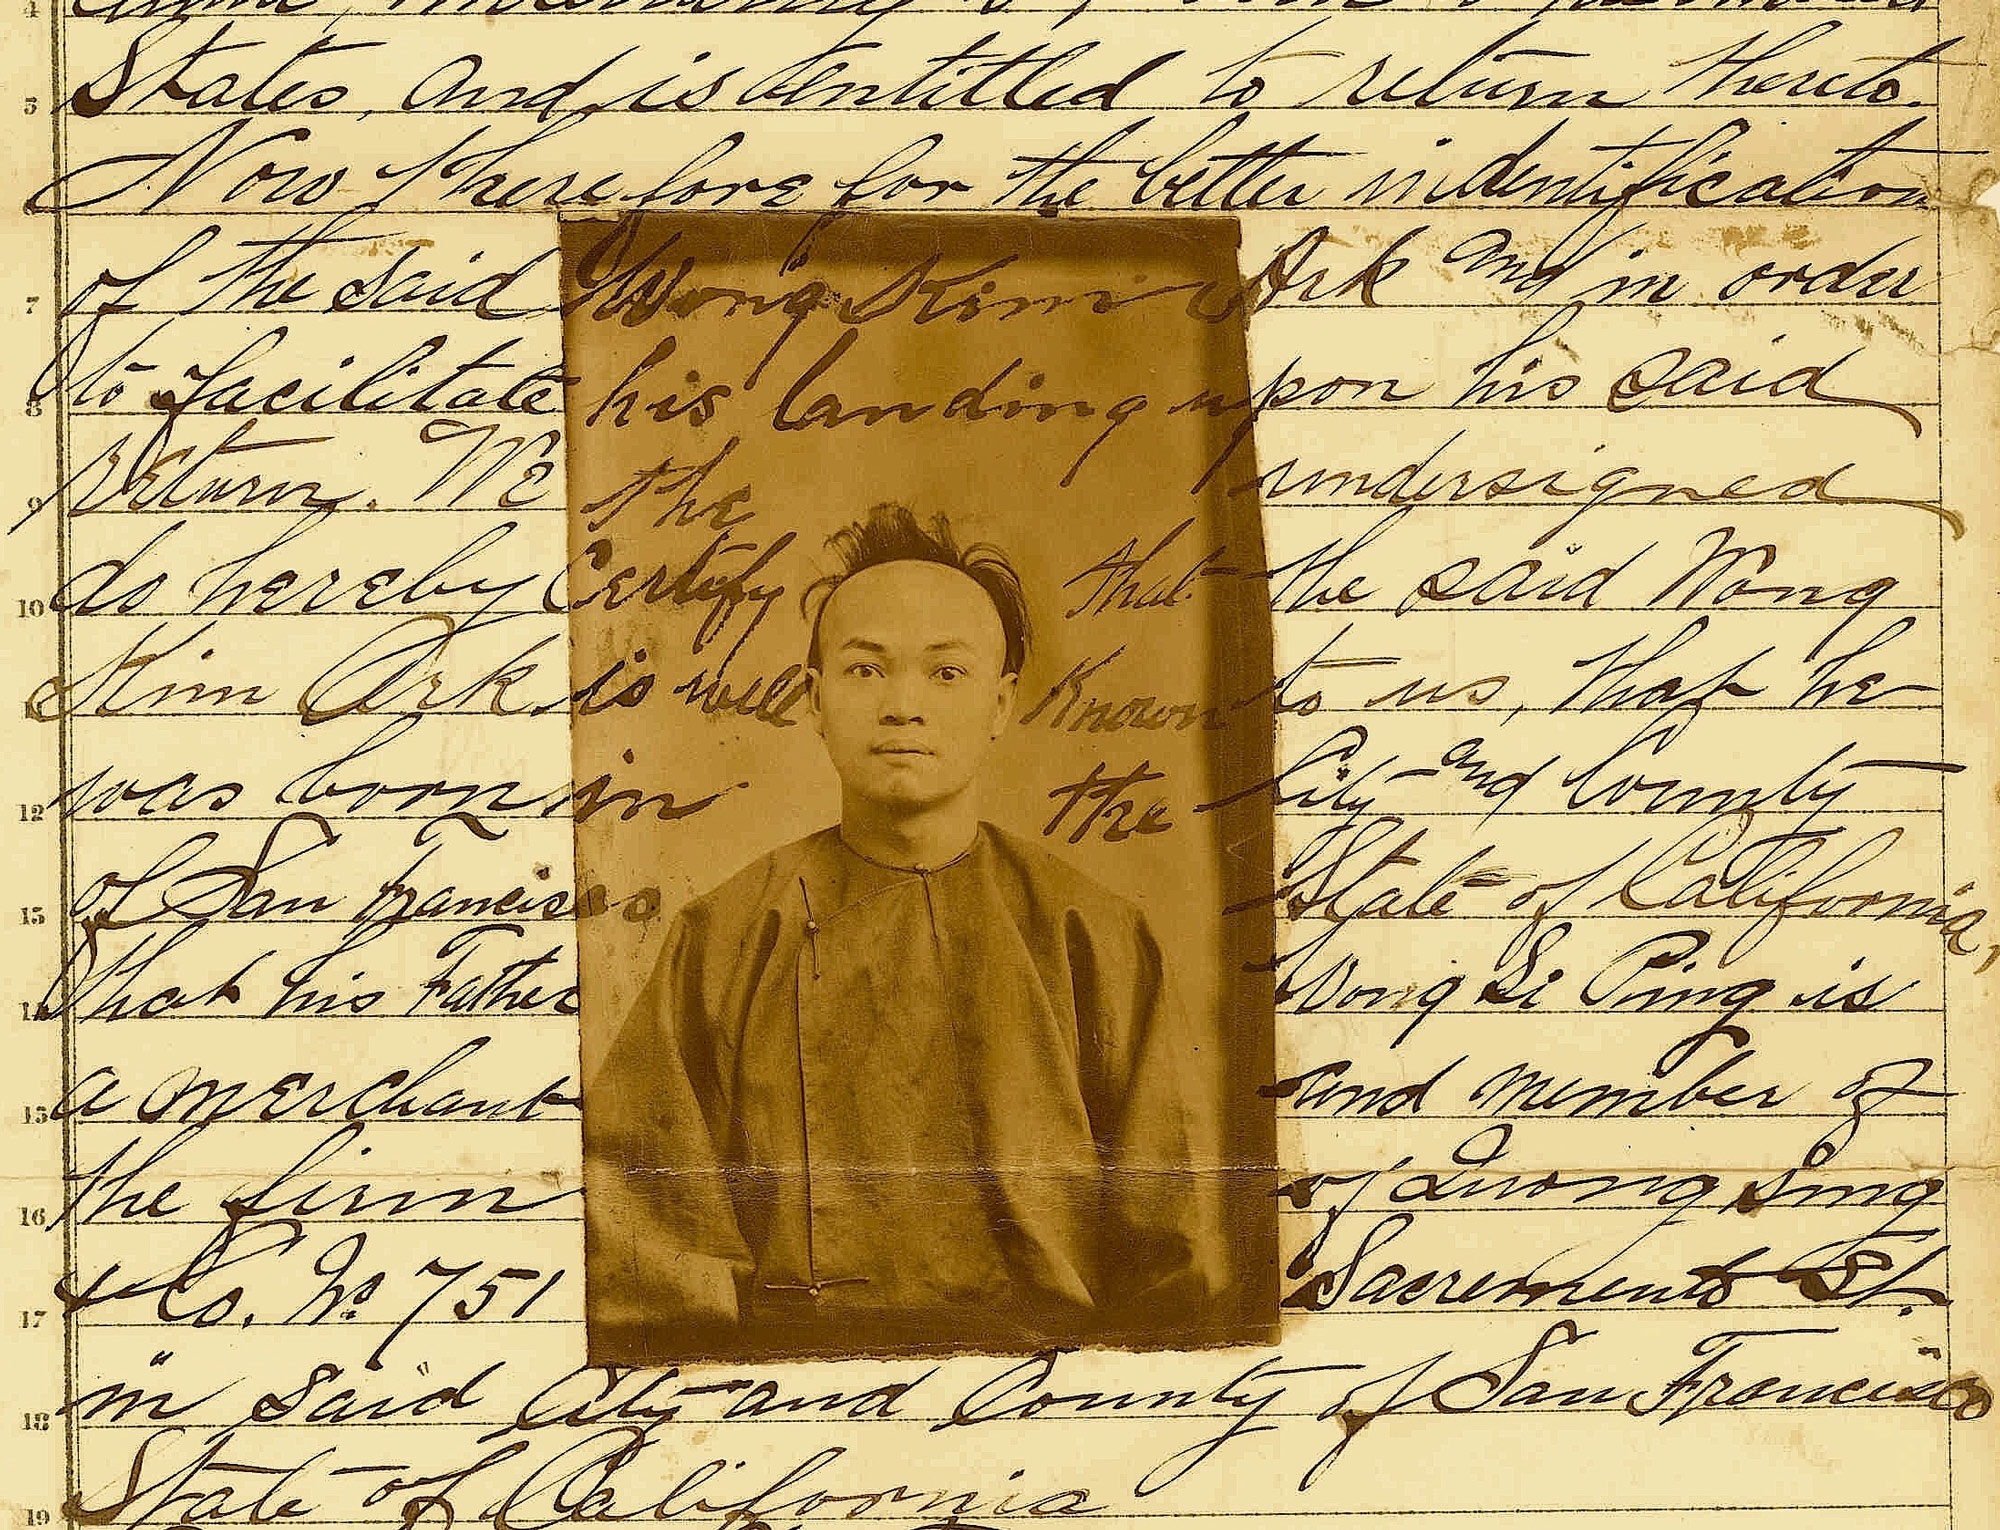 States, and is entitled to return thereto.
5
Now therefore for the better indentification
6
of the said Wong Kim Ark and in order
7
to facilitate his landing upon his said
8
return. We the undersigned
9
do hereby certify that the said Wong
10
Kim Ark is well known to us, that he
11
was born in the City and County
12
of San Francisco State of California,
13
that his Father Wong Si Ping is
14
a merchant and member of
15
the firm of Quong Sing
16
& Co. No. 751 Sacremento St.
17
in said City and County of San Francisco
18
State of California
19